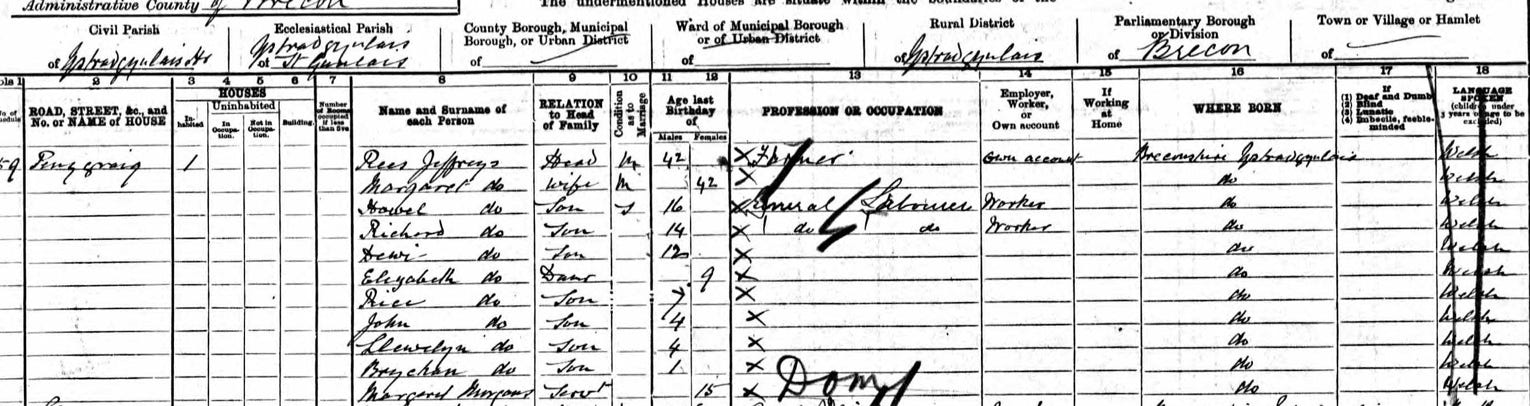 Administrative County of Brecon
The undermentioned Houses are situate within the boundaries of the
Civil Parish Ecclesiastical Parish County Borough, Municipal Borough, or Urban District Ward of Municipal Borough or of Urban District Rural District Parliamentary Borough or Division Town or Village or Hamlet
of Ystradgynlais Hr of Ystradgynlais St Gunlais of of of Ystradgynlais of Brecon of
2 3 4 5 6 7 8 9 10 11 12 13 14 15 16 17 18
ROAD, STREET, &c., and No. or NAME of HOUSE HOUSES Inhabited Uninhabited In Occupation. Not in Occupation. Building. Number of Rooms occupied if less than five Name and Surname of each Person RELATION to Head of Family Condition as to Marriage Age last Birthday of Males Females PROFESSION OR OCCUPATION Employer, Worker, or Own account If Working at Home WHERE BORN If (1) Deaf and Dumb (2) Blind (3) Lunatic (4) Imbecile, feeble-minded LANGUAGE SPOKEN (children under 3 years of age to be excluded)
59 1 Rees Jeffreys Head M 42 X Farmer own account Breconshire Ystradgynlais Welsh
Margaret do Wife M 42 X do Welsh
Howel do Son S 16 X General Labourer Worker do Welsh
Richard do Son 14 X do do Worker do Welsh
Dewi Son 12 X do Welsh
Elizabeth do Daur 9 X do Welsh
Rice do Son 7 X do Welsh
John do Son 4 X do Welsh
Llewelyn do Son 4 X do Welsh
Brychan do Son 1 X do Welsh
Margaret Morgans Servt 15 X Dom do Welsh